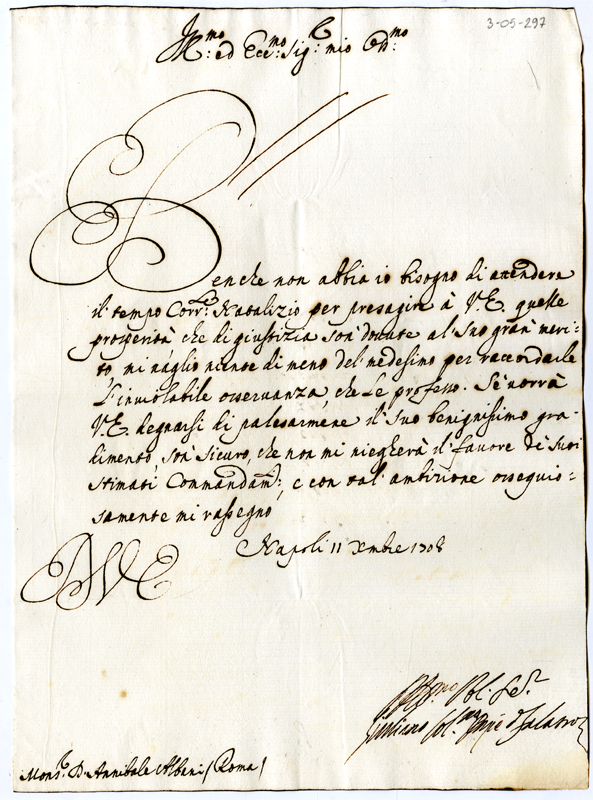 3-05-297
Ill.mo ed Ecc.mo Sig.r mio Oss.mo
Benche non abbia io bisogno di attendere
il tempo Corr.te Natalizio per presagire à V.E. quelle
prosperità che di giustizia son' dovute al' Suo gran' meri-
to, mi vaglio niente di meno del' medesimo per raccordarle
L'inviolabile osservanza, che Le professo. Se vorrà
V.E. degnarsi di palesarmene il' Suo benignissimo gra-
dimento, son' Sicuro, che non mi niegherà il' favore de' Suoi
Stimati Commandam.ti; e con tal' ambizione ossequio=
samente mi rassegno
Napoli 11 Xmbre 1708
Giuliano
Mons.r D. Annibale Albani (Roma)